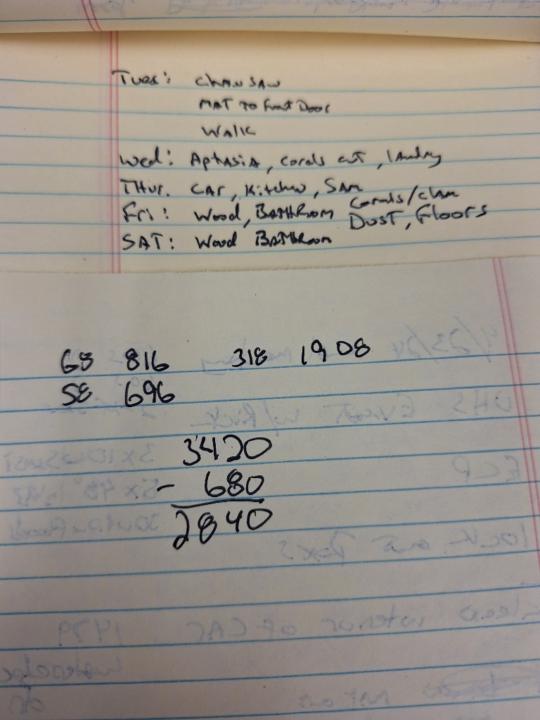 Tues: CHAINSAW
MAT to Front Door
WALK
Wed: Aphasia, corals cut, laundry
Thur. CAR, Kitchen, SAM
Fri: Wood, BATHRoom Corals/clam
Dust, Floors
SAT: Wood BATHRoom
68 816 318 1908
58 696
3420
- 680
2840